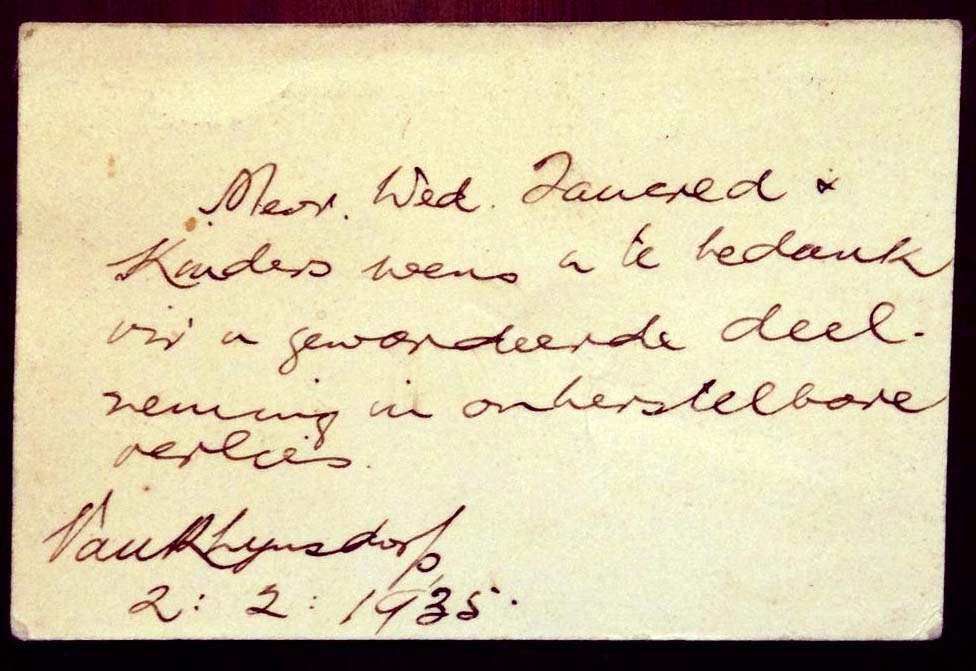 Mevr. Wed. Tancred &
Kinders wens u te bedank
vir u gewardeerde deel-
neming in onherstelbare
verlies.
VanRhynsdorp,
2: 2: 1935.